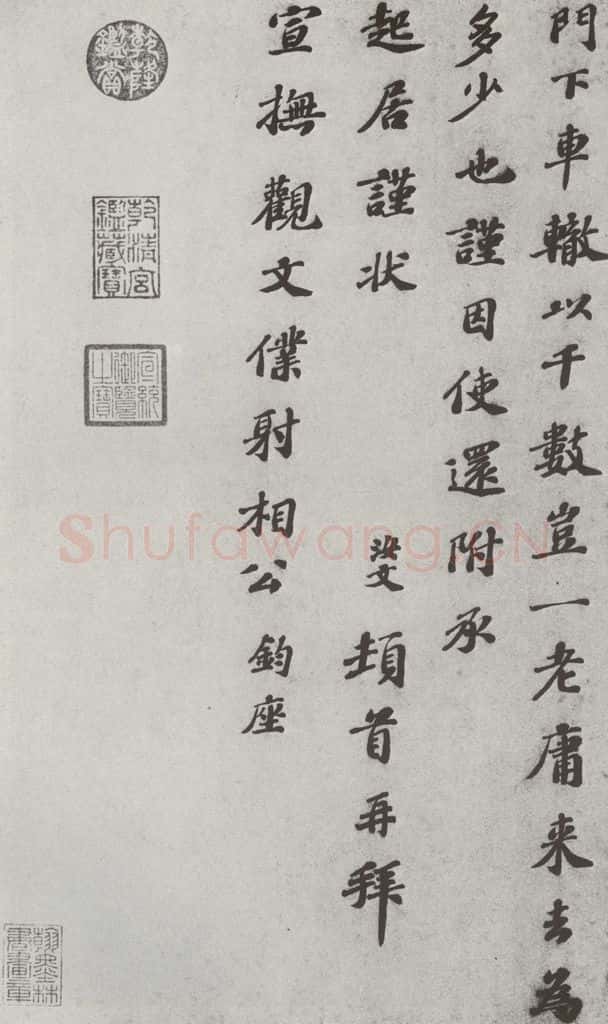 門下車轍以千數豈一老庸来去為
多少也謹因使還附承
起居謹状 汝文 頓首再拜
宣撫觀文僕射相公 鈞座
乾隆鑑賞
乾清宮鑑藏寶
宣統御覽之寶
翰墨林書畫章
Shufawang.CN